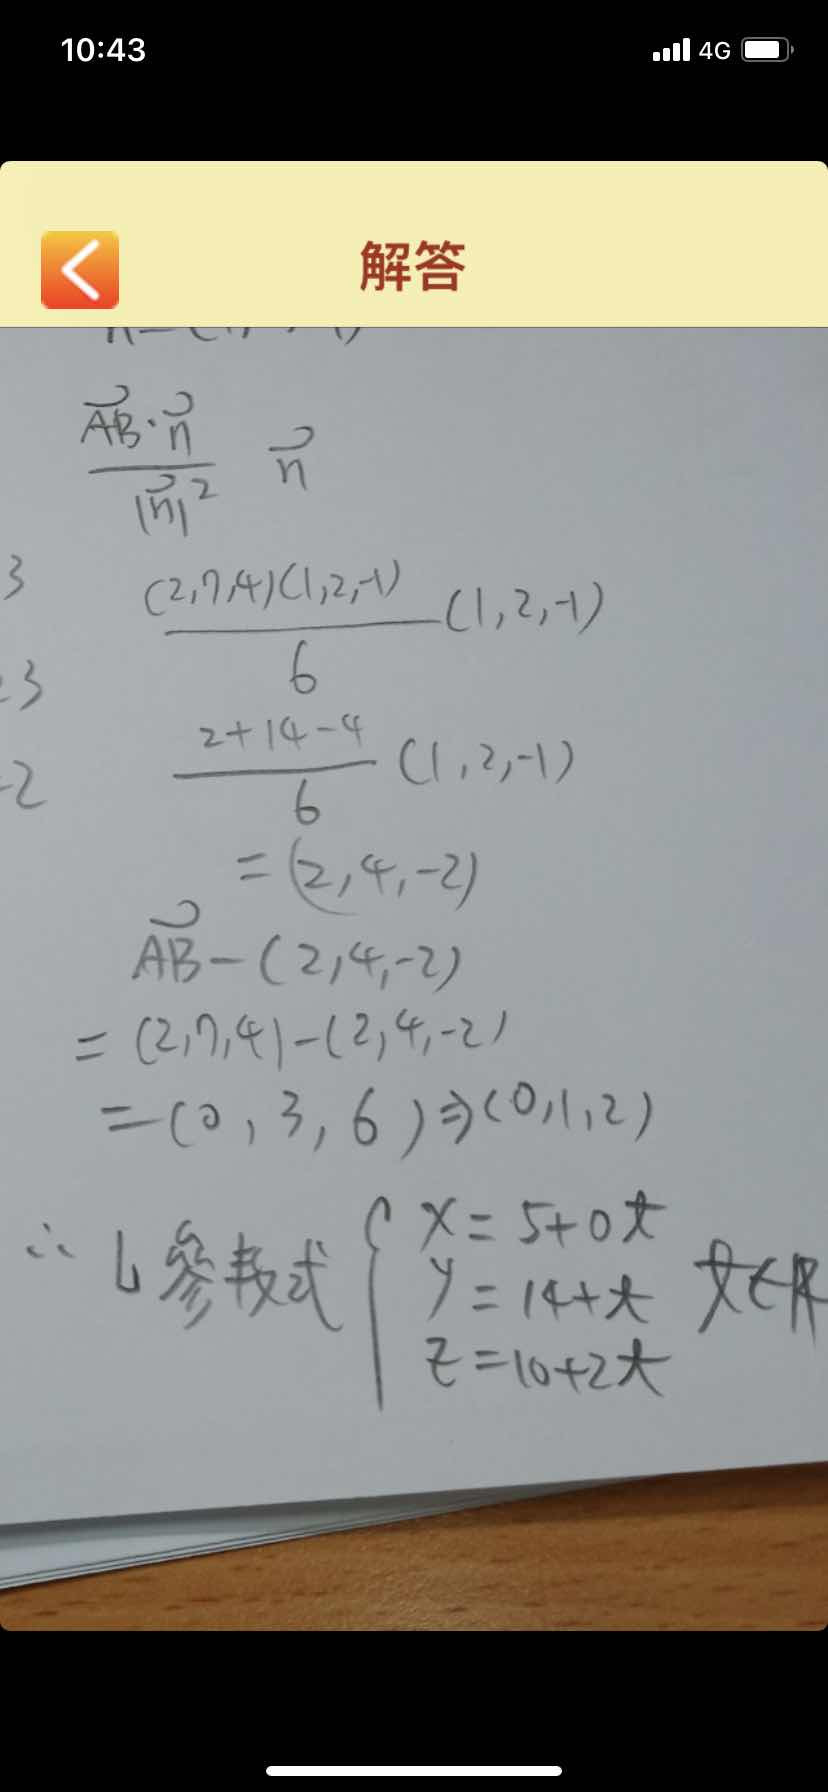 10:43
4G
解答
AB·n
|n|² n
3
(2,7,4)(1,2,-1)
6 (1,2,-1)
3
2+14-4
6 (1,2,-1)
-2
=(2,4,-2)
AB-(2,4,-2)
=(2,7,4)-(2,4,-2)
=(0,3,6)⇒(0,1,2)
∴L參數式 { x=5+0t
y=14+t t∈R
z=10+2t